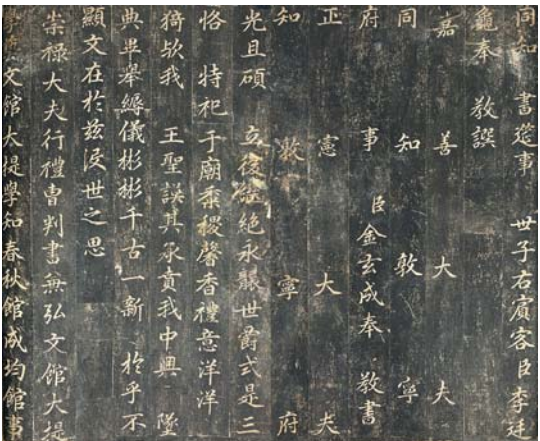 同知 書筵事 世子右賓客臣李廷
龜奉 敎譔
嘉善大夫
同知敦寧
府事 臣金玄成奉 敎書
正憲大夫
知敦寧府
光且碩 立後繼絶永襲世爵式是三
恪 特祀于廟黍稷馨香禮意洋洋
猗歟我 王聖謨其承賁我中興 墜
典畢擧縟儀彬彬千古一新 於乎不
顯文在於兹後世之思
崇祿大夫行禮曹判書兼弘文館大提
學藝文館大提學知春秋館成均館事